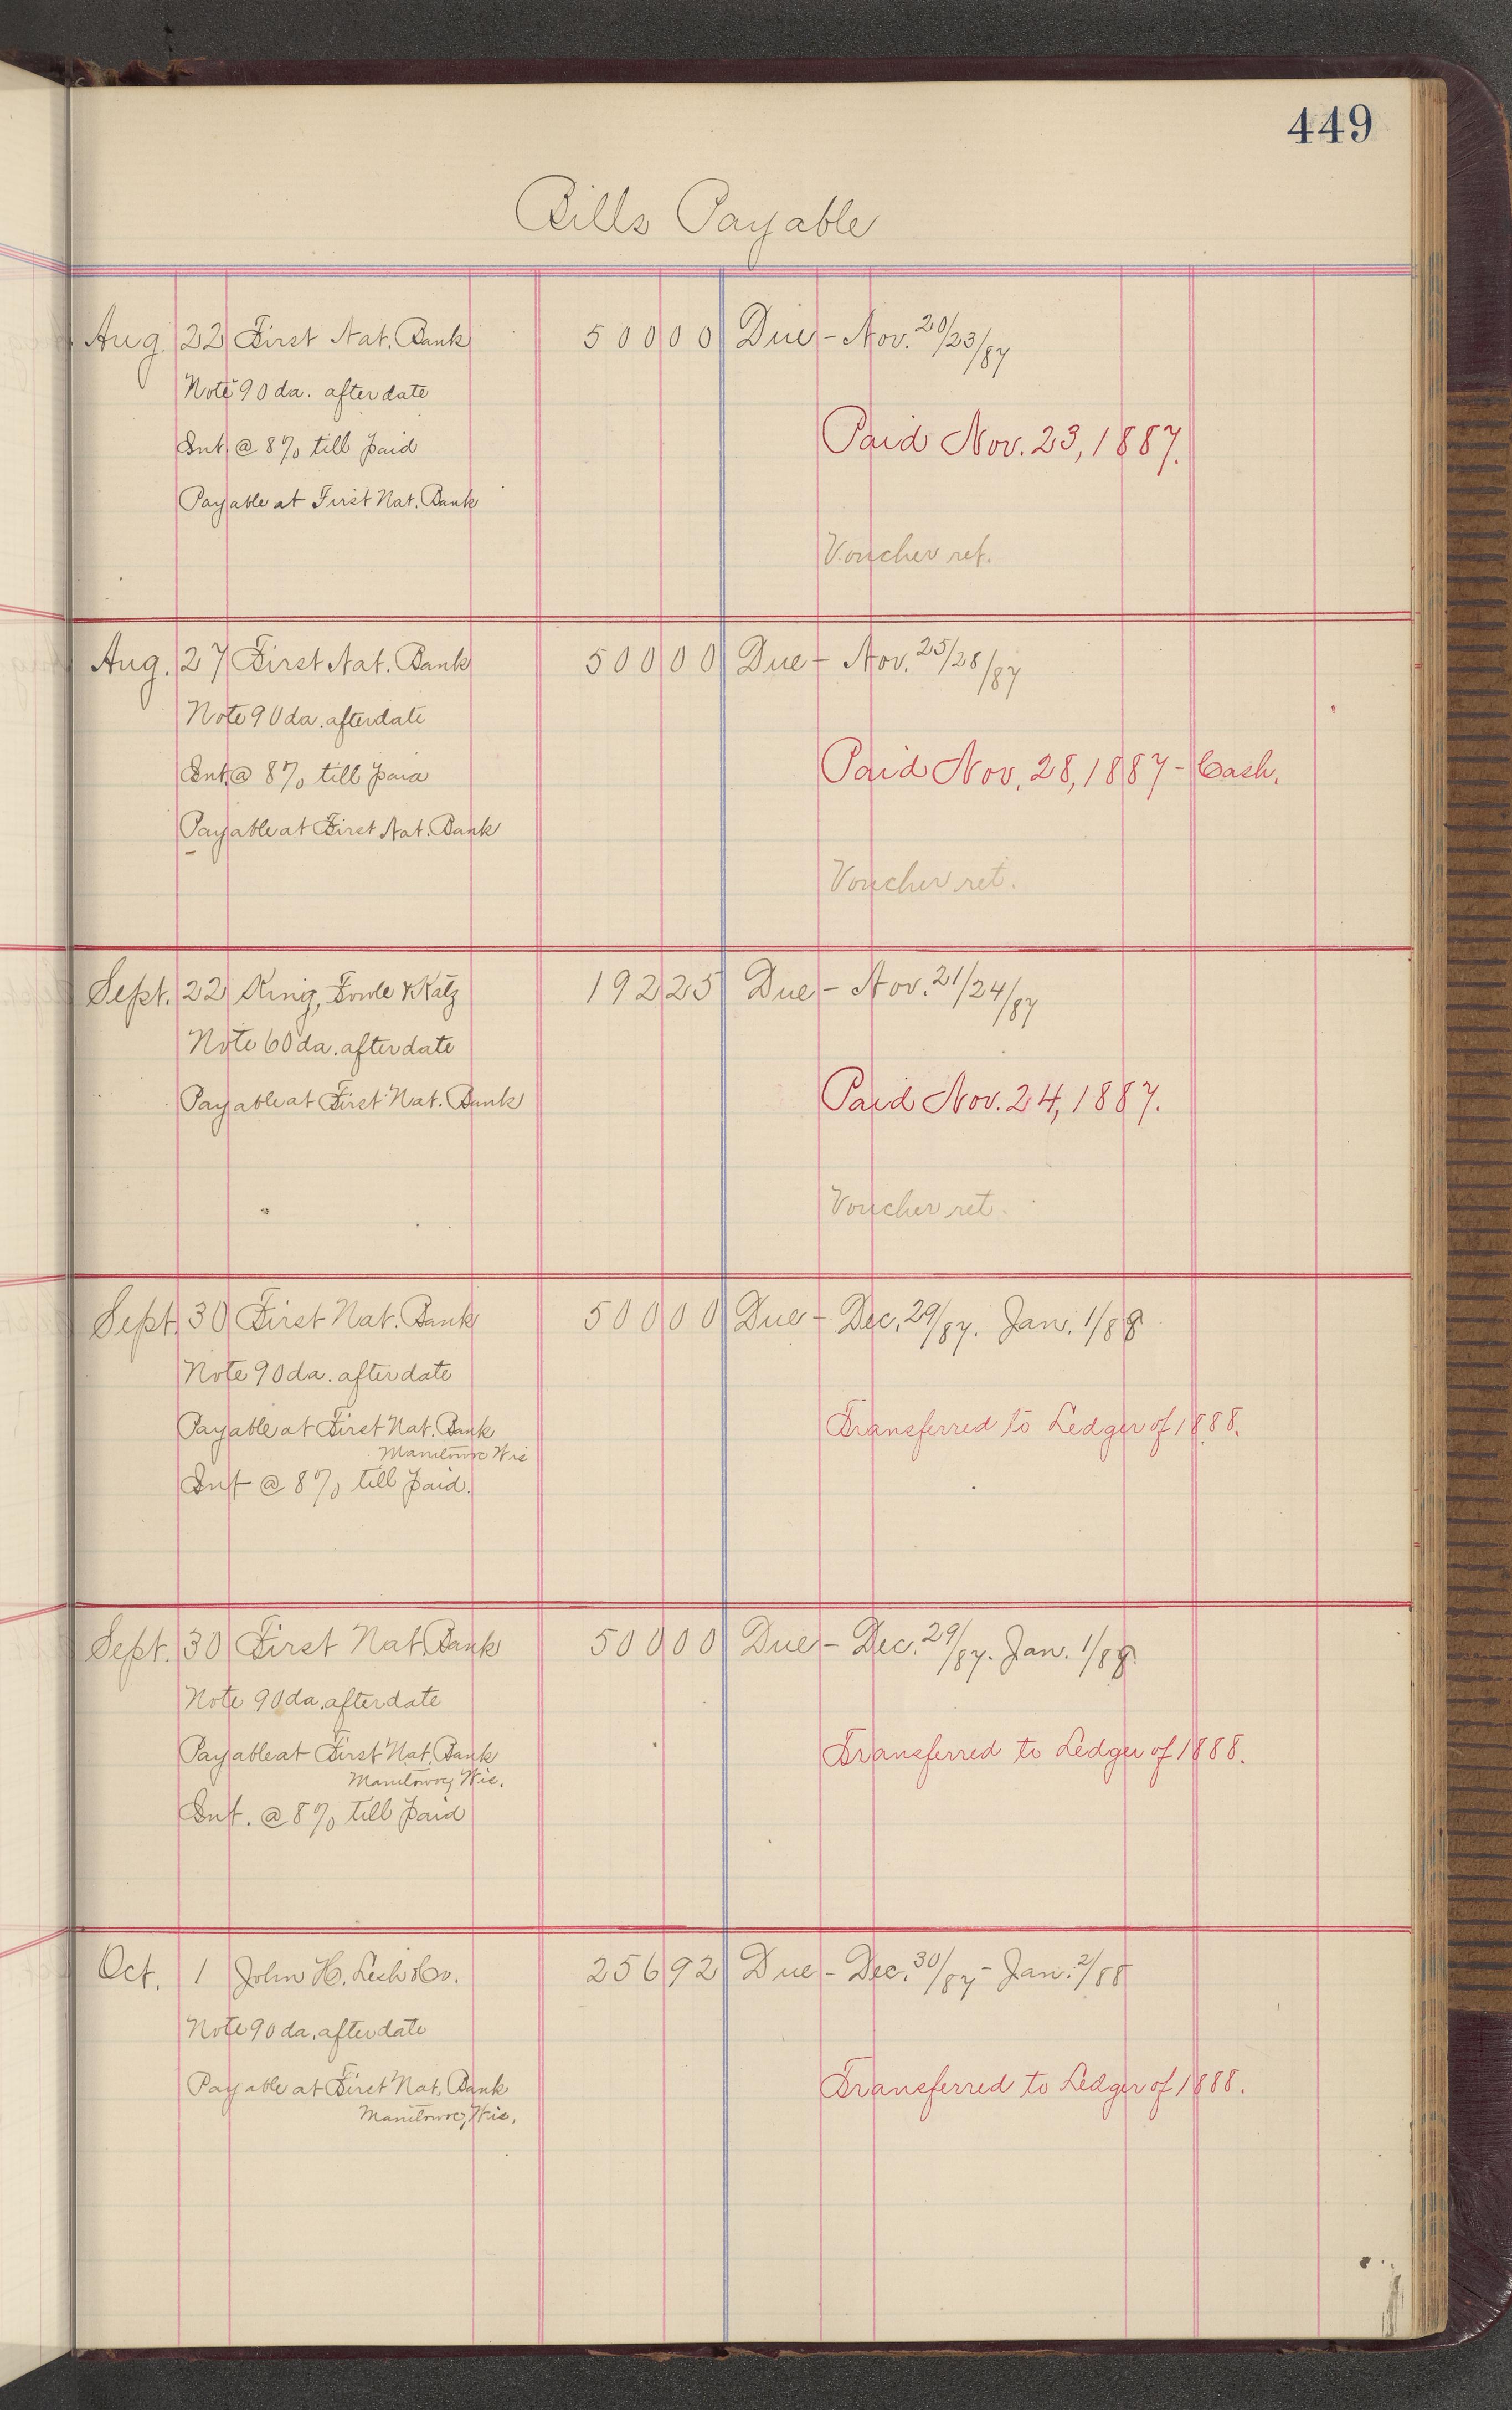 449
Bills Payable
Aug. 22 First Nat. Bank 500 00 Due - Nov. 20/23/87
Note 90 da. after date
Int. @ 8% till paid
Paid Nov. 23, 1887.
Payable at First Nat. Bank
Voucher ret.
Aug. 27 First Nat. Bank 500 00 Due - Nov. 25/28/87
Note 90 da. after date
Int. @ 8% till paid
Paid Nov. 28, 1887 - Cash.
Payable at First Nat. Bank
Voucher ret.
Sept. 22 King, Fowle & Katz 192 25 Due - Nov. 21/24/87
Note 60 da. after date
Payable at First Nat. Bank
Paid Nov. 24, 1887.
Voucher ret.
Sept. 30 First Nat. Bank 500 00 Due - Dec. 29/87. Jan. 1/88
Note 90 da. after date
Payable at First Nat. Bank
Transferred to Ledger of 1888.
Manitowoc Wis
Int @ 8% till paid.
Sept. 30 First Nat. Bank 500 00 Due - Dec. 29/87. Jan. 1/88
Note 90 da. after date
Payable at First Nat. Bank
Transferred to Ledger of 1888.
Manitowoc, Wis.
Int. @ 8% till paid
Oct. 1 John H. Lesh & Co. 256 92 Due - Dec. 30/87 - Jan. 2/88
Note 90 da. after date
Payable at First Nat. Bank
Transferred to Ledger of 1888.
Manitowoc, Wis.